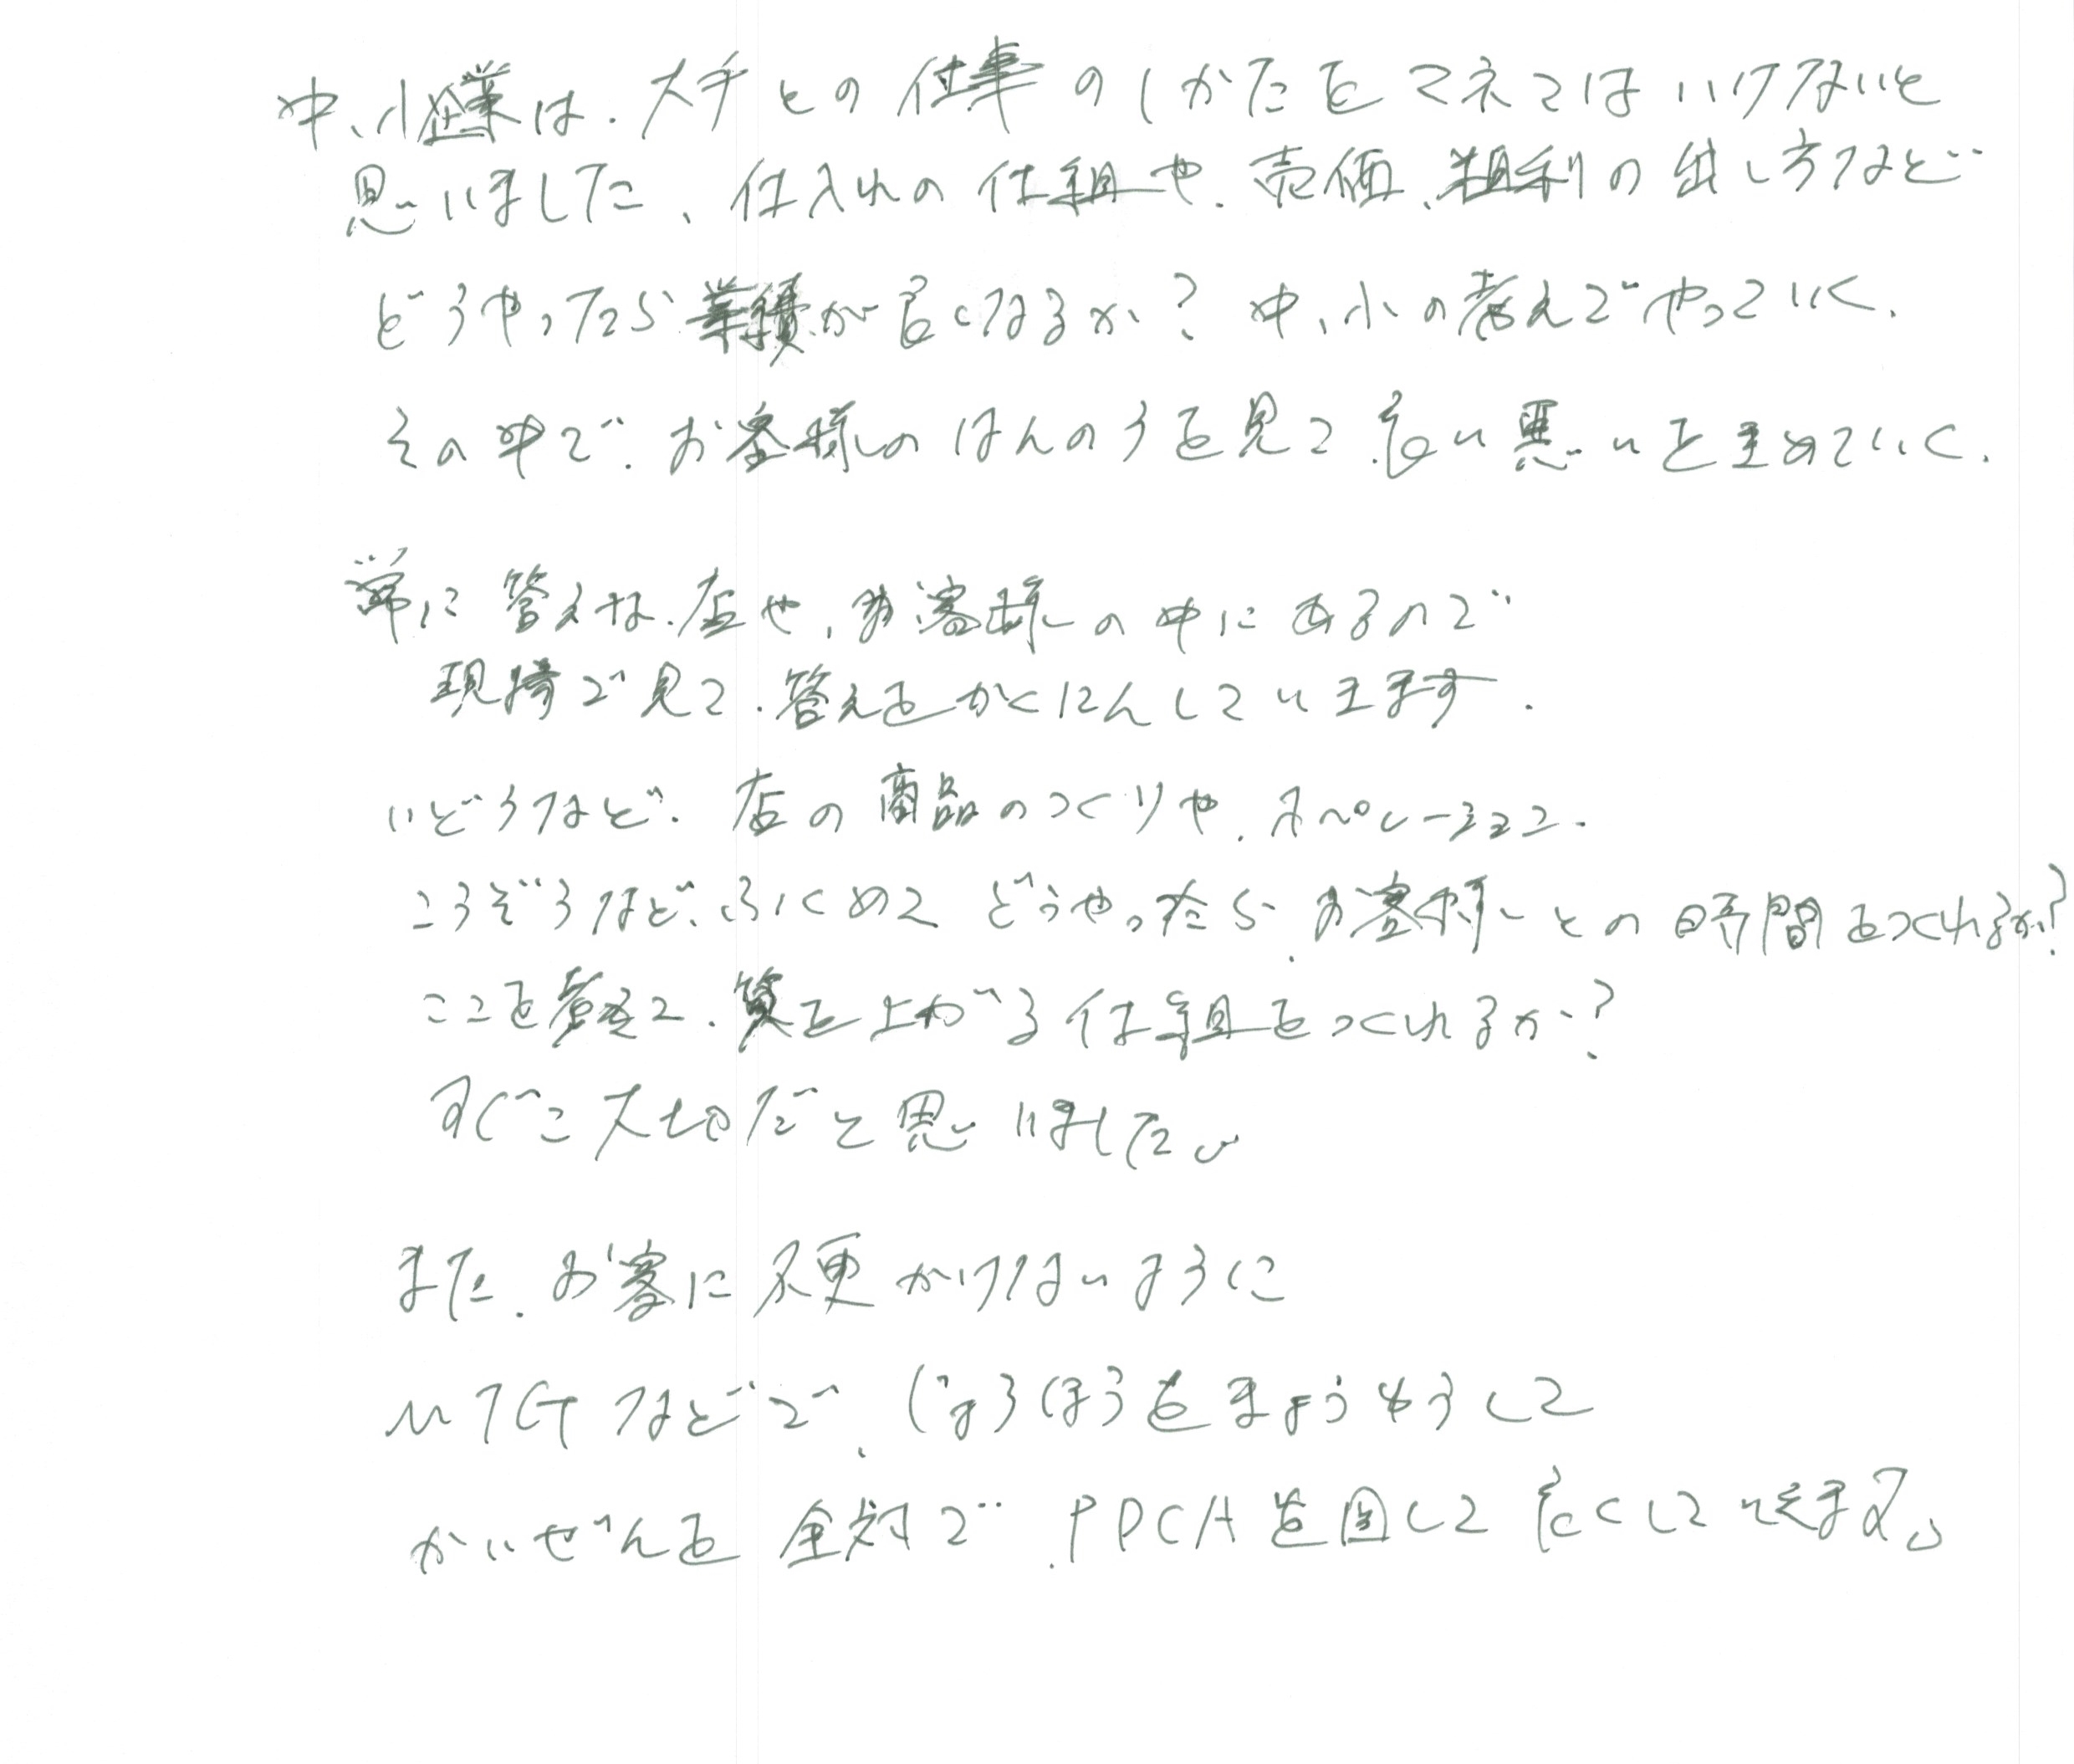 中、小企業は、大手との仕事のしかたをマネてはいけないと
思いました、仕入れの仕組や、売価、粗利の出し方など
どうやったら業績が良くなるか？中、小の考えでやっていく、
その中で、お客様のはんのうを見て良い悪いをきめていく、
常に答えは、店や、お客様の中にあるので
現場で見て、答えをかくにんしています、
いどうなど、店の商品のつくりや、オペレーション、
こうぞうなど、ふくめてどうやったら、お客様との時間をつくれるか？
ここを考えて、質を上がる仕組をつくれるか？
すごく大切だと思いました。
また、お客に不便かけないように
MTGなどで、じょうほうをきょうゆうして
かいぜんを全対で、PDCAを回して良くしていきます。